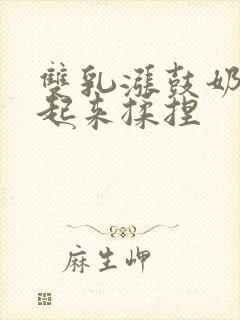 雙乳漲鼓奶
起来揉捏
麻生岬